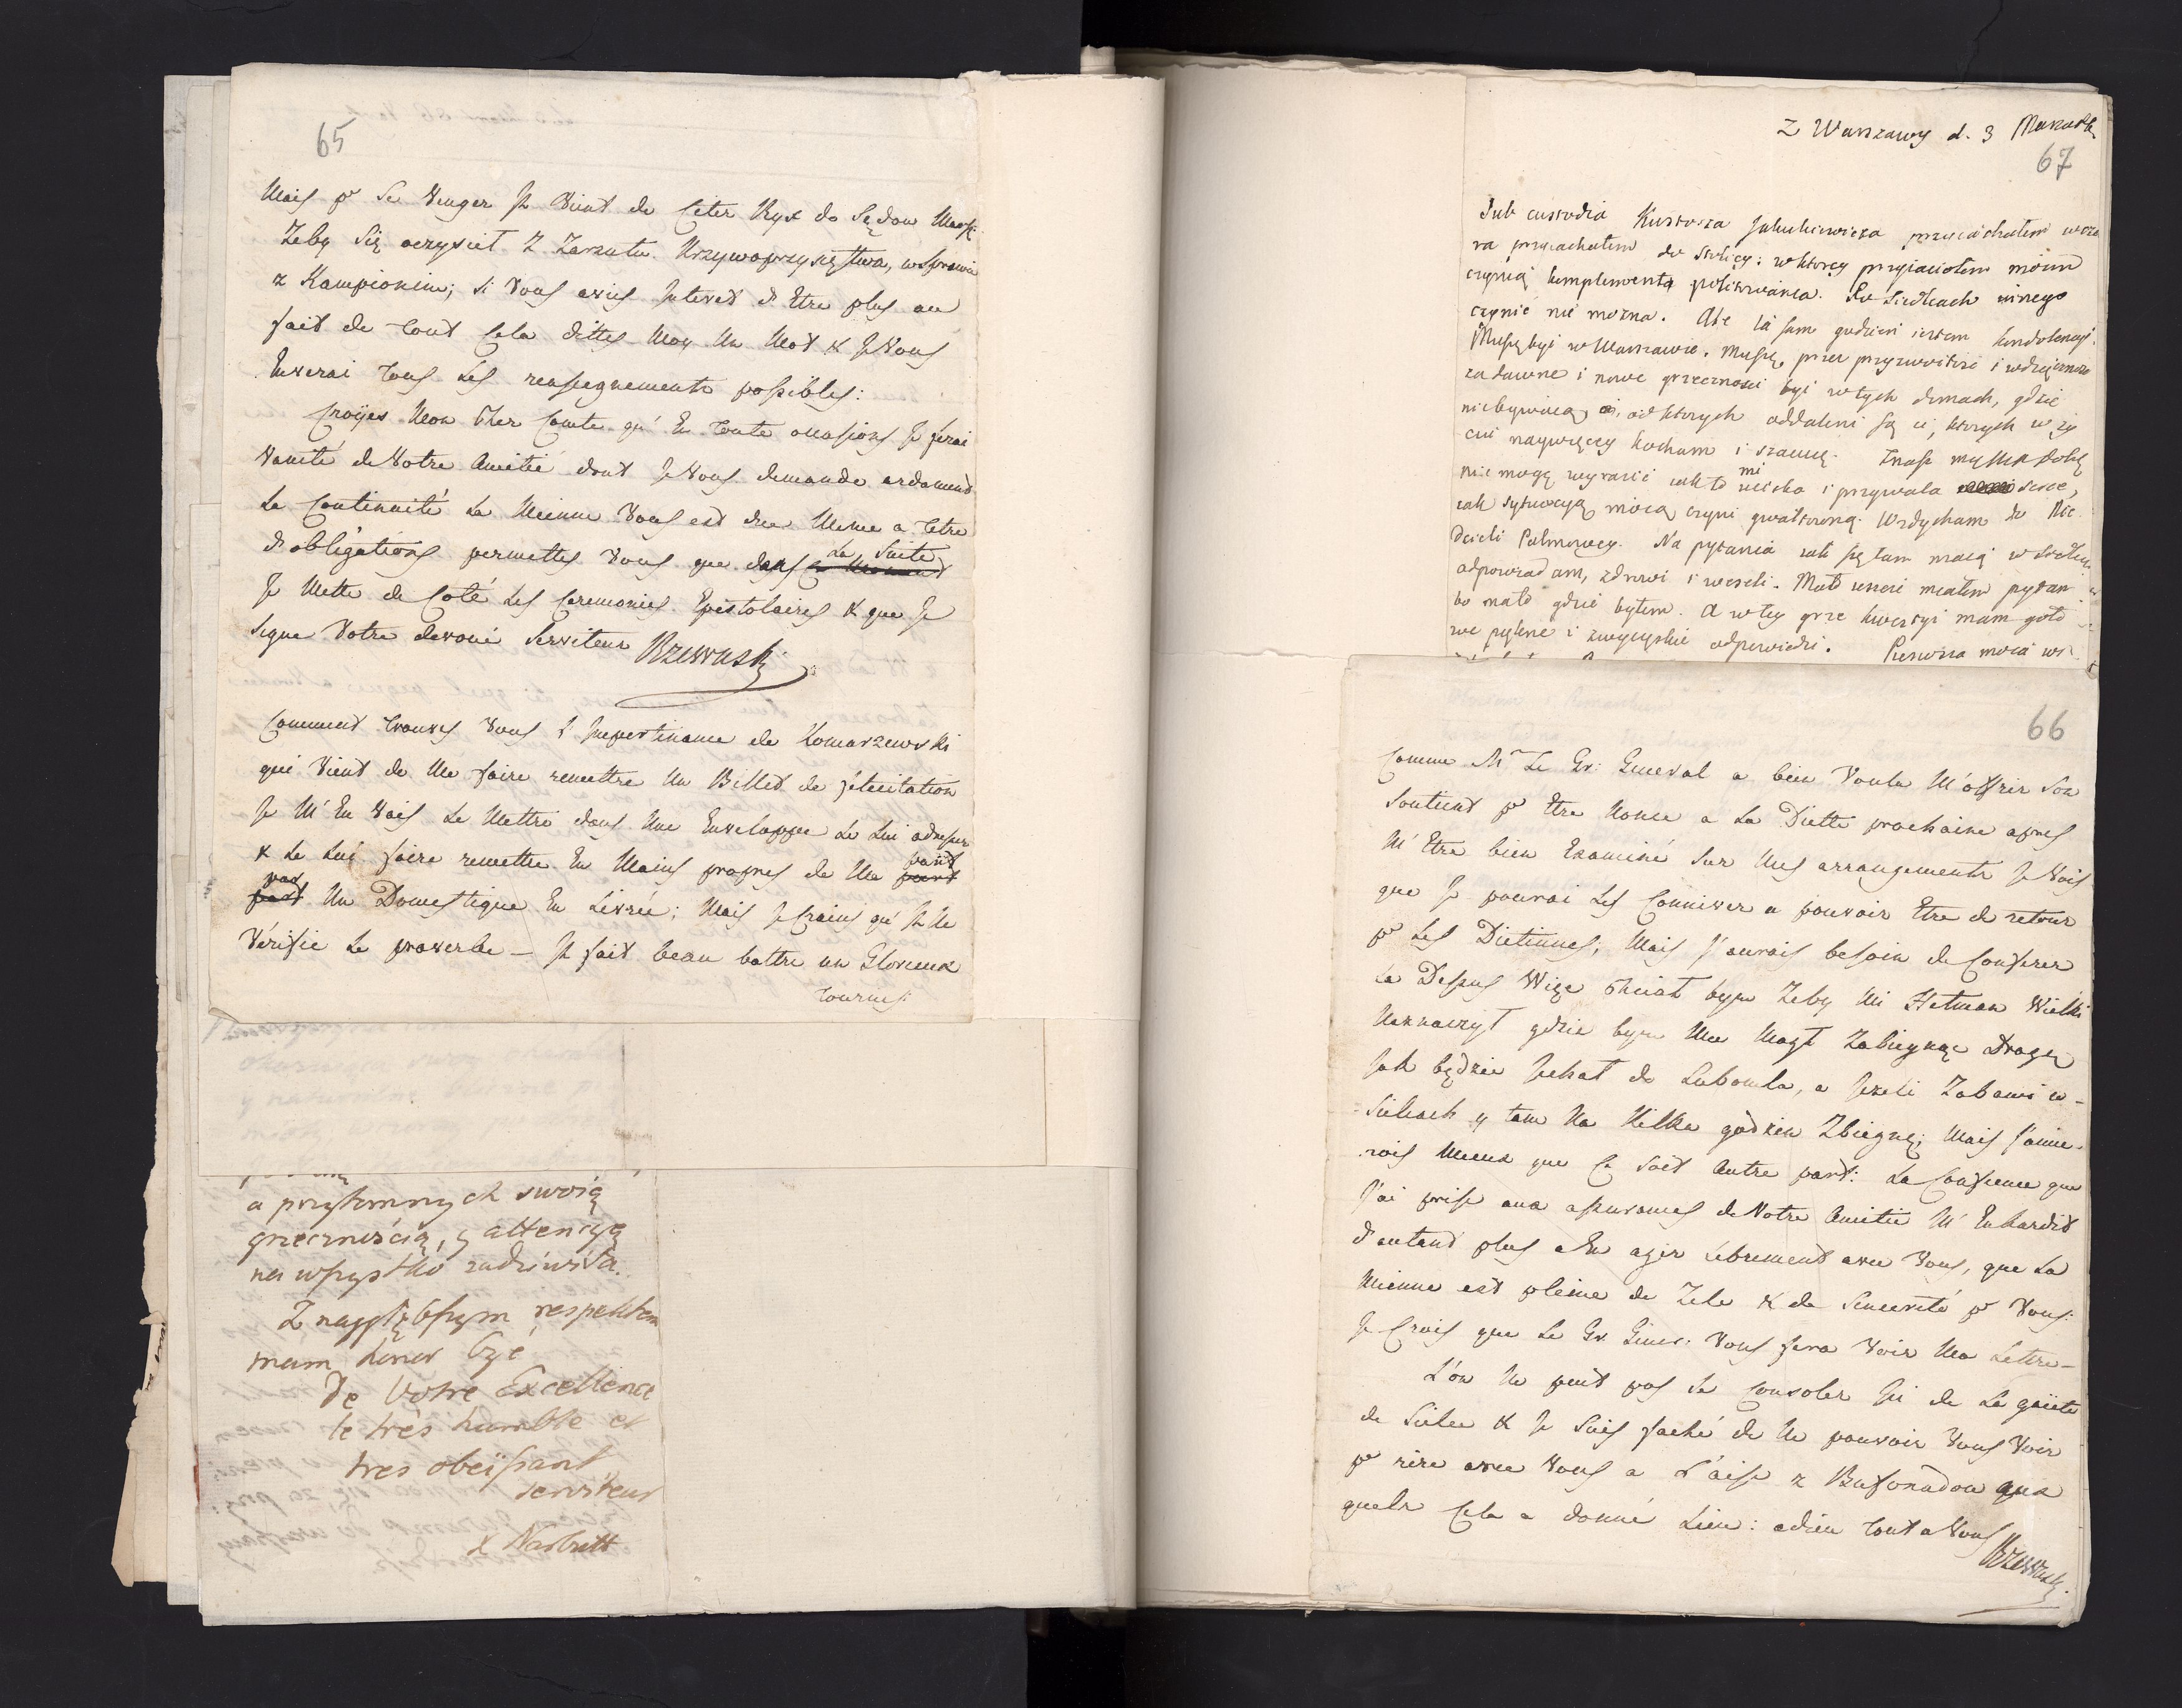 65
Mais pr Se Venger Il Vient de Citer Ryx do Sądow Marsz:
Zeby Się oczyscił Z Zarzutu Krzywoprzysięstwa, w Sprawie
z Kampionim; Si Vous aviés Interet d'Etre plus au
fait de tout Cela dittes Moy Un Mot & Je Vous
Enverai tous Les renseignements possibles:
Croÿes Mon Cher Comte qu'En toute occasions Je ferai
Vanité de Votre Amitié dont Je Vous demande ardament
La Continuité La Mienne Vous est due Meme a Titre
d'obligations permettes Vous que dans La Suite
Je Mette de Coté Les Ceremonies Epistolaires & que Je
Signe Votre devoué Serviteur Rzewuski
Comment trouves Vous L'Impertinance de Komarzewski
qui Vient de Me faire remettre Un Billet de félicitation
Je M'En Vais Le Mettre dans Une Enveloppe Le Lui adresser
& Le Lui faire remettre En Mains propres de Ma part
par Un Domestique En Livrée; Mais Je Crains qu'Il Ne
Vérifie Le proverbe – Il fait beau battre un Glorieux
tournés:
a przytomnych swoią
grzecznością, y attencyą
na wszystko zadziwiła.
Z naygłębszym respektem
mam honor być
De Votre Excellence
le très humble et
tres obeïssant
serviteur
X Narbutt
Z Warszawy d. 3 Marca
67
Sub custodia Kustosza Jakukiewicza przyiachałem
przyiachałem do Stolicy: w ktorey przyiaciołom moim
czynią komplementa politowania. Po Siedlcach innego
czynić nie można. Ale ia sam godzien iestem kondolencyi.
Muszę być w Warszawie. Muszę, przez przyzwoitość i wdzięczność
za dawne i nowe grzeczności być w tych domach, gdzie
niebywaią, i od ktorych oddaleni są ci, ktorych w ży
ciu naywięcey kocham i szanuię.
nie mogę wyrazić iak to mi uciska i przywala serce,
iak sytuacyą moią czyni gwałtowną. Wzdycham do Nie
dzieli Palmowey. Na pytania iak się tam maią w Siedlcach
odpowiadam, zdrowi i weseli. Mało ieszcze miałem pytan
bo mało gdzie byłem. A w tey grze kwestyi mam goto
we piękne i zwycięskie odpowiedzi. Pierwsza moia
66
Comme Mr Le Gr: General a bien Voulu M'offrir Son
Soutient pr Etre Nonce a La Diette prochaine apres
M'Etre bien Examiné Sur Mes arrangements Je Vois
que Je pourai Les Conniver a pouvoir Etre de retour
pr Les Dietinnes; Mais J'aurais besoin de Conferer
La Dessus Więc chciał bym Zeby Mi Hetman Wielki
Naznaczył gdzie bym Mu Mogł Zabiegnąc Drogę
Jak będzie Jechał do Lubomla, a Jezeli Zabawi w –
Siełcach y tam Na Kilka godzin Zbiegnę; Mais J'aime-
rois Mieux que Ce Soit Autre part: La Confience que
J'ai prise aux assurances de Votre Amitié M'Enhardit
d'autant plus a En agir Librement avec Vous, que La
Mienne est pleine de Zele & de Sincerité pr Vous:
Je Crois que Le Gr. Gener: Vous fera Voir Ma Lettre –
L'on Ne peut pas Se Consoler Ici de La gaiete
de Sielce & Je Suis faché de Ne pouvoir Vous Voir
pr rire avec Vous a L'aise z Bufonadow aux
quels Cela a donné Lieu: adieu tout a Vous
Rzewuski